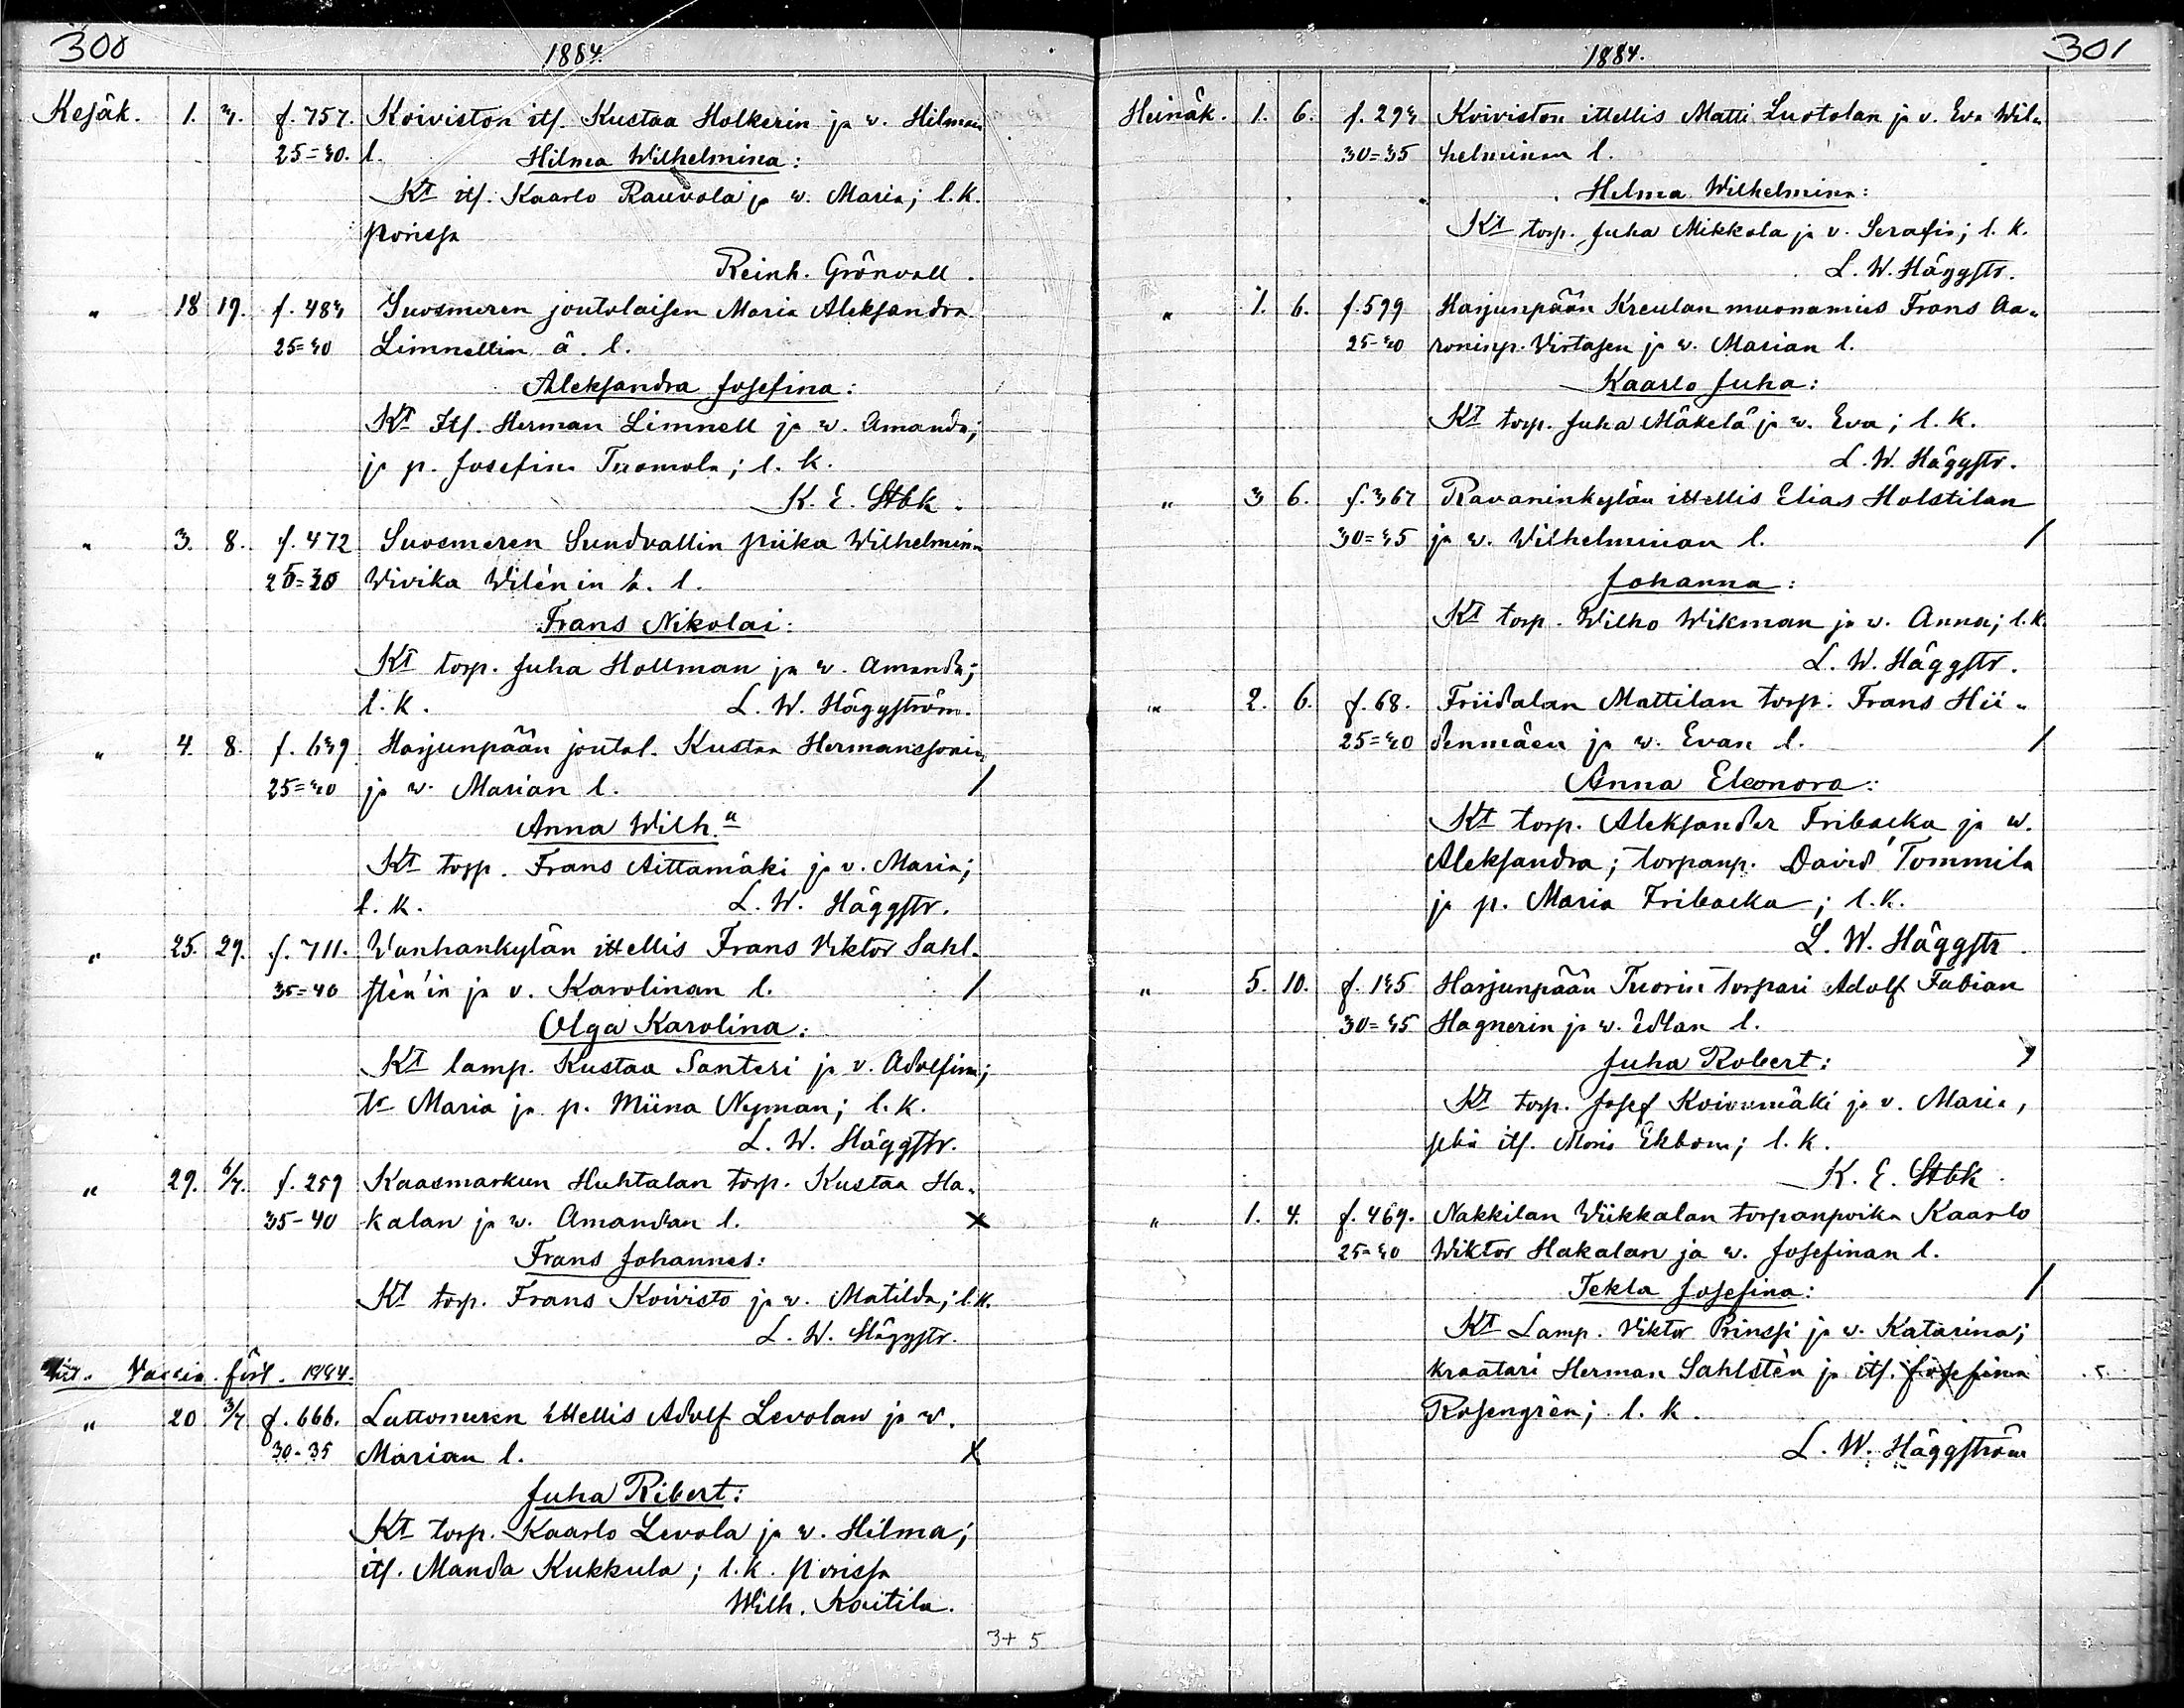 300
1884.
Kesäk. 1. 3. f. 757. Koiviston itf. Kustaa Holkerin ja w. Hilman
25=30. l. Hilma Wilhelmina:
Kt itf. Kaarlo Rauvola ja w. Maria; l. k.
porissa
Reinh. Grönvall.
" 18 19. f. 484 Suosmeren joutolaisen Maria Aleksandra
25=30 Limnellin ä. l.
Aleksandra Josefina:
Kt Itf. Herman Limnell ja w. Amanda;
ja p. Josefina Tuomola; l. k.
K. E. Stbk.
" 3. 8. f. 472 Suosmeren Sundvallin piika Wilhelmina
25=30 Wivika Wilén'in ä. l.
Frans Nikolai:
Kt torp. Juha Hollman ja w. Amanda;
l. k. L. W. Häggström.
" 4. 8. f. 649 Harjunpään joutol. Kustaa Hermanssonin
25=30 ja w. Marian l. /
Anna Wilh.a
Kt torp. Frans Aittamäki ja v. Maria;
l. k. L. W. Häggstr.
" 25. 29. f. 711. Wanhankylän ittellis Frans Viktor Sahl-
35=40 stén'in ja v. Karolinan l. /
Olga Karolina:
Kt lamp. Kustaa Santeri ja v. Adolfina;
tr Maria ja p. Miina Nyman; l. k.
L. W. Häggstr.
" 29. 6/7. f. 259 Kaasmarkun Huhtalan torp. Kustaa Ha-
35-40 kalan ja w. Amandan l. x
Frans Johannes:
Kt torp. Frans Koivisto ja w. Matilda; l. k.
L. W. Häggstr.
Vaccin. förl. 1884.
" 20 3/7. f. 666. Lattomeren ittellis Adolf Levolan ja w.
30-35 Marian l. X
Juha Ribert:
Kt torp. Kaarlo Levola ja w. Hilma;
itf. Manda Kukkula; l. k. porissa
Wilh. Koitila.
3+ 5
301
1884.
Heinäk. 1. 6. f. 294 Koiviston ittellis Matti Luotolan ja v. Eva Wil-
30=35 helminan l.
Hilma Wilhelmina:
Kt torp. Juha Mikkola ja v. Serafin; l. k.
L. W. Häggstr.
" 1. 6. f. 599 Harjunpään Kreulan muonamies Frans Aa-
25-30 roninp. Virtasen ja w. Marian l.
Kaarlo Juha:
Kt torp. Juha Mäkelä ja w. Eva; l. k.
L. W. Häggstr.
" 3 6. f. 367 Ravaninkylän ittellis Elias Holstilan
30=35 ja w. Wilhelminan l. /
Johanna:
Kt torp. Wilho Wikman ja w. Anna; l. k.
L. W. Häggstr.
" 2. 6. f. 68. Friidalan Mattilan torp. Frans Hii-
25=30 denmäen ja w. Evan l. /
Anna Eleonora:
Kt torp. Aleksander Fribacka ja w.
Aleksandra; torpanp. David Tommila
ja p. Maria Fribacka; l. k.
L. W. Häggstr.
" 5. 10. f. 145 Harjunpään Tuorin torpari Adolf Fabian
30=35 Hagnerin ja w. Edlan l.
Juha Robert: /
Kt torp. Josef Koivumäki ja v. Maria,
sekä itf. Ekbom; l. k.
K. E. Stbk.
" 1. 4. f. 469. Nakkilan Wiikkalan torpanpoika Kaarlo
25=30 Wiktor Hakalan ja w. Josefinan l.
Tekla Josefina: /
Kt Lamp. Viktor Prinssi ja w. Katarina;
kraatari Herman Sahlstén ja itf. Josefina
Rosengrén; l. k.
L. W. Häggström